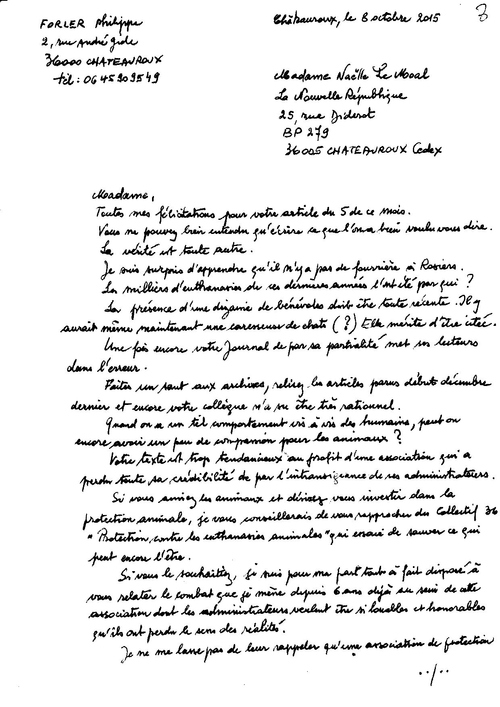 3
FORLER Philippe
2, rue André gide
36000 CHATEAUROUX
tél : 06 45 90 95 49
Châteauroux, le 8 octobre 2015
Madame Naëlle Le Moal
La Nouvelle République
25, rue Diderot
BP 279
36005 CHATEAUROUX Cedex
Madame,
Toutes mes félicitations pour votre article du 5 de ce mois.
Vous ne pouvez bien entendu qu'écrire ce que l'on a bien voulu vous dire.
La vérité est toute autre.
Je suis surpris d'apprendre qu'il n'y a pas de fourrière à Rosiers.
Les milliers d'euthanasies de ces dernières années l'ont été par qui ?
La présence d'une dizaine de bénévoles doit être toute récente. Il y
aurait même maintenant une caresseuse de chats (?) Elle mérite d'être citée.
Une fois encore votre Journal de par sa partialité met ses lecteurs
dans l'erreur.
Faites un saut aux archives, relisez les articles parus début décembre
dernier et encore votre collègue n'a su être très rationnel.
Quand on a un tel comportement vis à vis des humains, peut on
encore avoir un peu de compassion pour les animaux ?
Votre texte est trop tendancieux au profit d'une association qui a
perdu toute sa crédibilité de par l'intransigeance de ses administrateurs.
Si vous aimiez les animaux et désirez vous investir dans la
protection animale, je vous conseillerais de vous rapprocher du Collectif 36
"Protection contre les euthanasies animales" qui essaie de sauver ce qui
peut encore l'être.
Si vous le souhaitiez, je suis pour ma part tout à fait disposé à
vous relater le combat que je mène depuis 6 ans déjà au sein de cette
association dont les administrateurs veulent être si louables et honorables
qu'ils ont perdu le sens des réalités.
Je ne me lasse pas de leur rappeler qu'une association de protection
../..